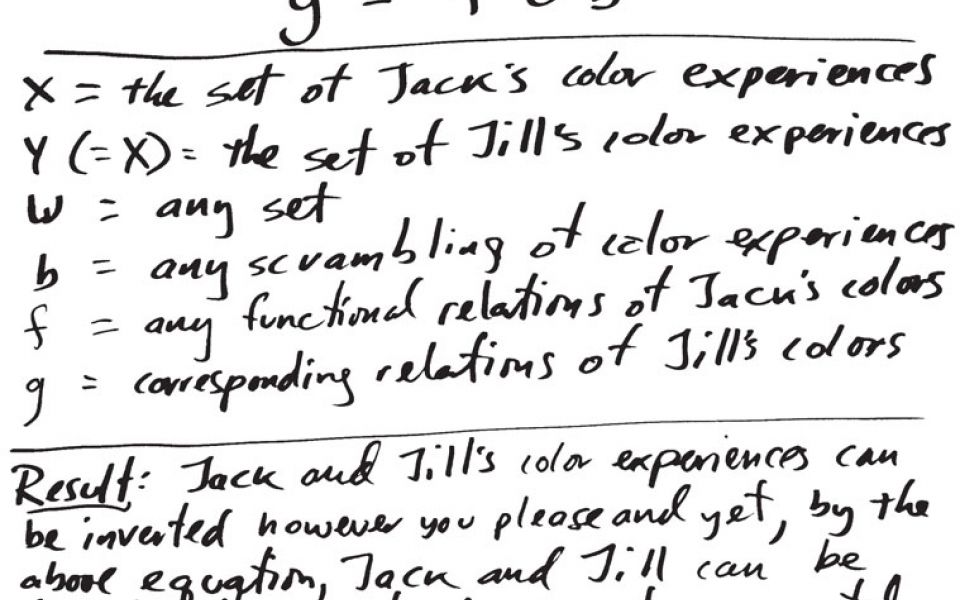 X = the set of Jack's color experiences
Y (=X) = the set of Jill's color experiences
W = any set
b = any scrambling of color experiences
f = any functional relations of Jack's colors
g = corresponding relations of Jill's colors
Result: Jack and Jill's color experiences can
be inverted however you please and yet, by the
above equation, Jack and Jill can be